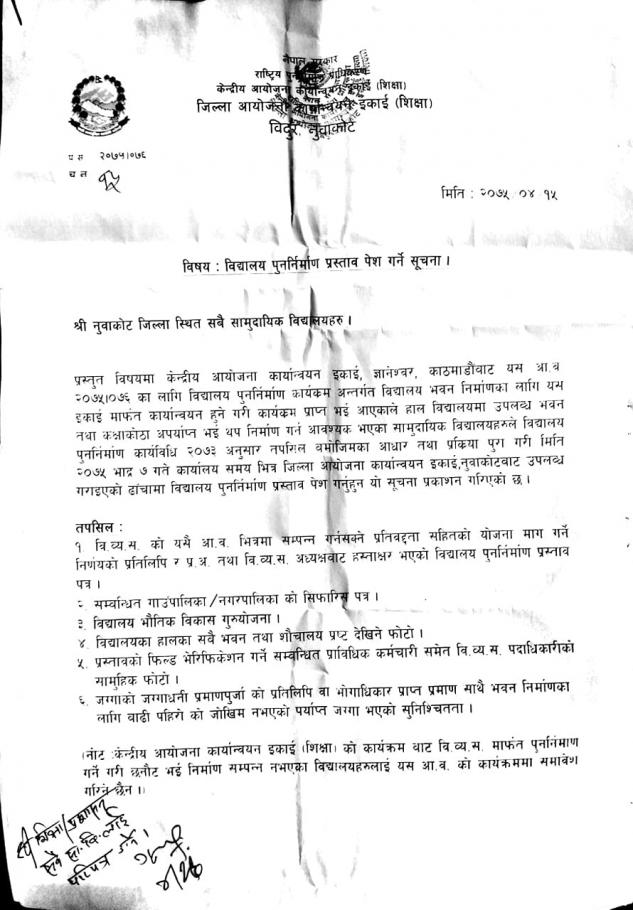 नेपाल सरकार
राष्ट्रिय पुनर्निर्माण प्राधिकरण
केन्द्रीय आयोजना कार्यान्वयन इकाई (शिक्षा)
जिल्ला आयोजना कार्यान्वयन इकाई (शिक्षा)
विदुर, नुवाकोट
प स २०७५।०७६
च न १५
मिति : २०७५ ०४ १५
विषय : विद्यालय पुनर्निर्माण प्रस्ताव पेश गर्ने सूचना ।
श्री नुवाकोट जिल्ला स्थित सबै सामुदायिक विद्यालयहरु ।
प्रस्तुत विषयमा केन्द्रीय आयोजना कार्यान्वयन इकाई, ज्ञानेश्वर, काठमाडौंबाट यस आ.व
२०७५।०७६ का लागि विद्यालय पुनर्निर्माण कार्यकम अन्तर्गत विद्यालय भवन निर्माणका लागि यस
इकाई मार्फत कार्यान्वयन हुने गरी कार्यकम प्राप्त भई आएकाले हाल विद्यालयमा उपलब्ध भवन
तथा कक्षाकोठा अपर्याप्त भई थप निर्माण गर्न आवश्यक भएका सामुदायिक विद्यालयहरुले विद्यालय
पुनर्निर्माण कार्यविधि २०७३ अनुसार तपसिल बमोजिमका आधार तथा प्रकिया पुरा गरी मिति
२०७५ भाद्र ७ गते कार्यालय समय भित्र जिल्ला आयोजना कार्यान्वयन इकाई,नुवाकोटबाट उपलब्ध
गराइएको ढाँचामा विद्यालय पुनर्निर्माण प्रस्ताव पेश गर्नुहुन यो सूचना प्रकाशन गरिएको छ ।
तपसिल :
१. वि.व्य.स. को यसै आ.व. भित्रमा सम्पन्न गर्नसक्ने प्रतिबद्दता सहितको योजना माग गर्ने
निर्णयको प्रतिलिपि र प्र.अ. तथा वि.व्य.स. अध्यक्षबाट हस्ताक्षर भएको विद्यालय पुनर्निर्माण प्रस्ताव
पत्र ।
२. सम्बन्धित गाउंपालिका/नगरपालिका को सिफारिस पत्र ।
३. विद्यालय भौतिक विकास गुरुयोजना ।
४. विद्यालयका हालका सबै भवन तथा शौचालय प्रष्ट देखिने फोटो ।
५. प्रस्तावको फिल्ड भेरिफिकेशन गर्ने सम्बन्धित प्राविधिक कर्मचारी समेत वि.व्य.स. पदाधिकारीको
सामुहिक फोटो ।
६. जग्गाको जग्गाधनी प्रमाणपुर्जा को प्रतिलिपि वा भोगाधिकार प्राप्त प्रमाण साथै भवन निर्माणका
लागि बाढी पहिरो को जोखिम नभएको पर्याप्त जग्गा भएको सुनिश्चितता ।
(नोट :केन्द्रीय आयोजना कार्यान्वयन इकाई (शिक्षा) को कार्यक्रम बाट वि.व्य.स. मार्फत पुनर्निमाण
गर्ने गरी छनौट भई निर्माण सम्पन्न नभएका विद्यालयहरुलाई यस आ.व. को कार्यक्रममा समावेश
गरिने छैन ।)